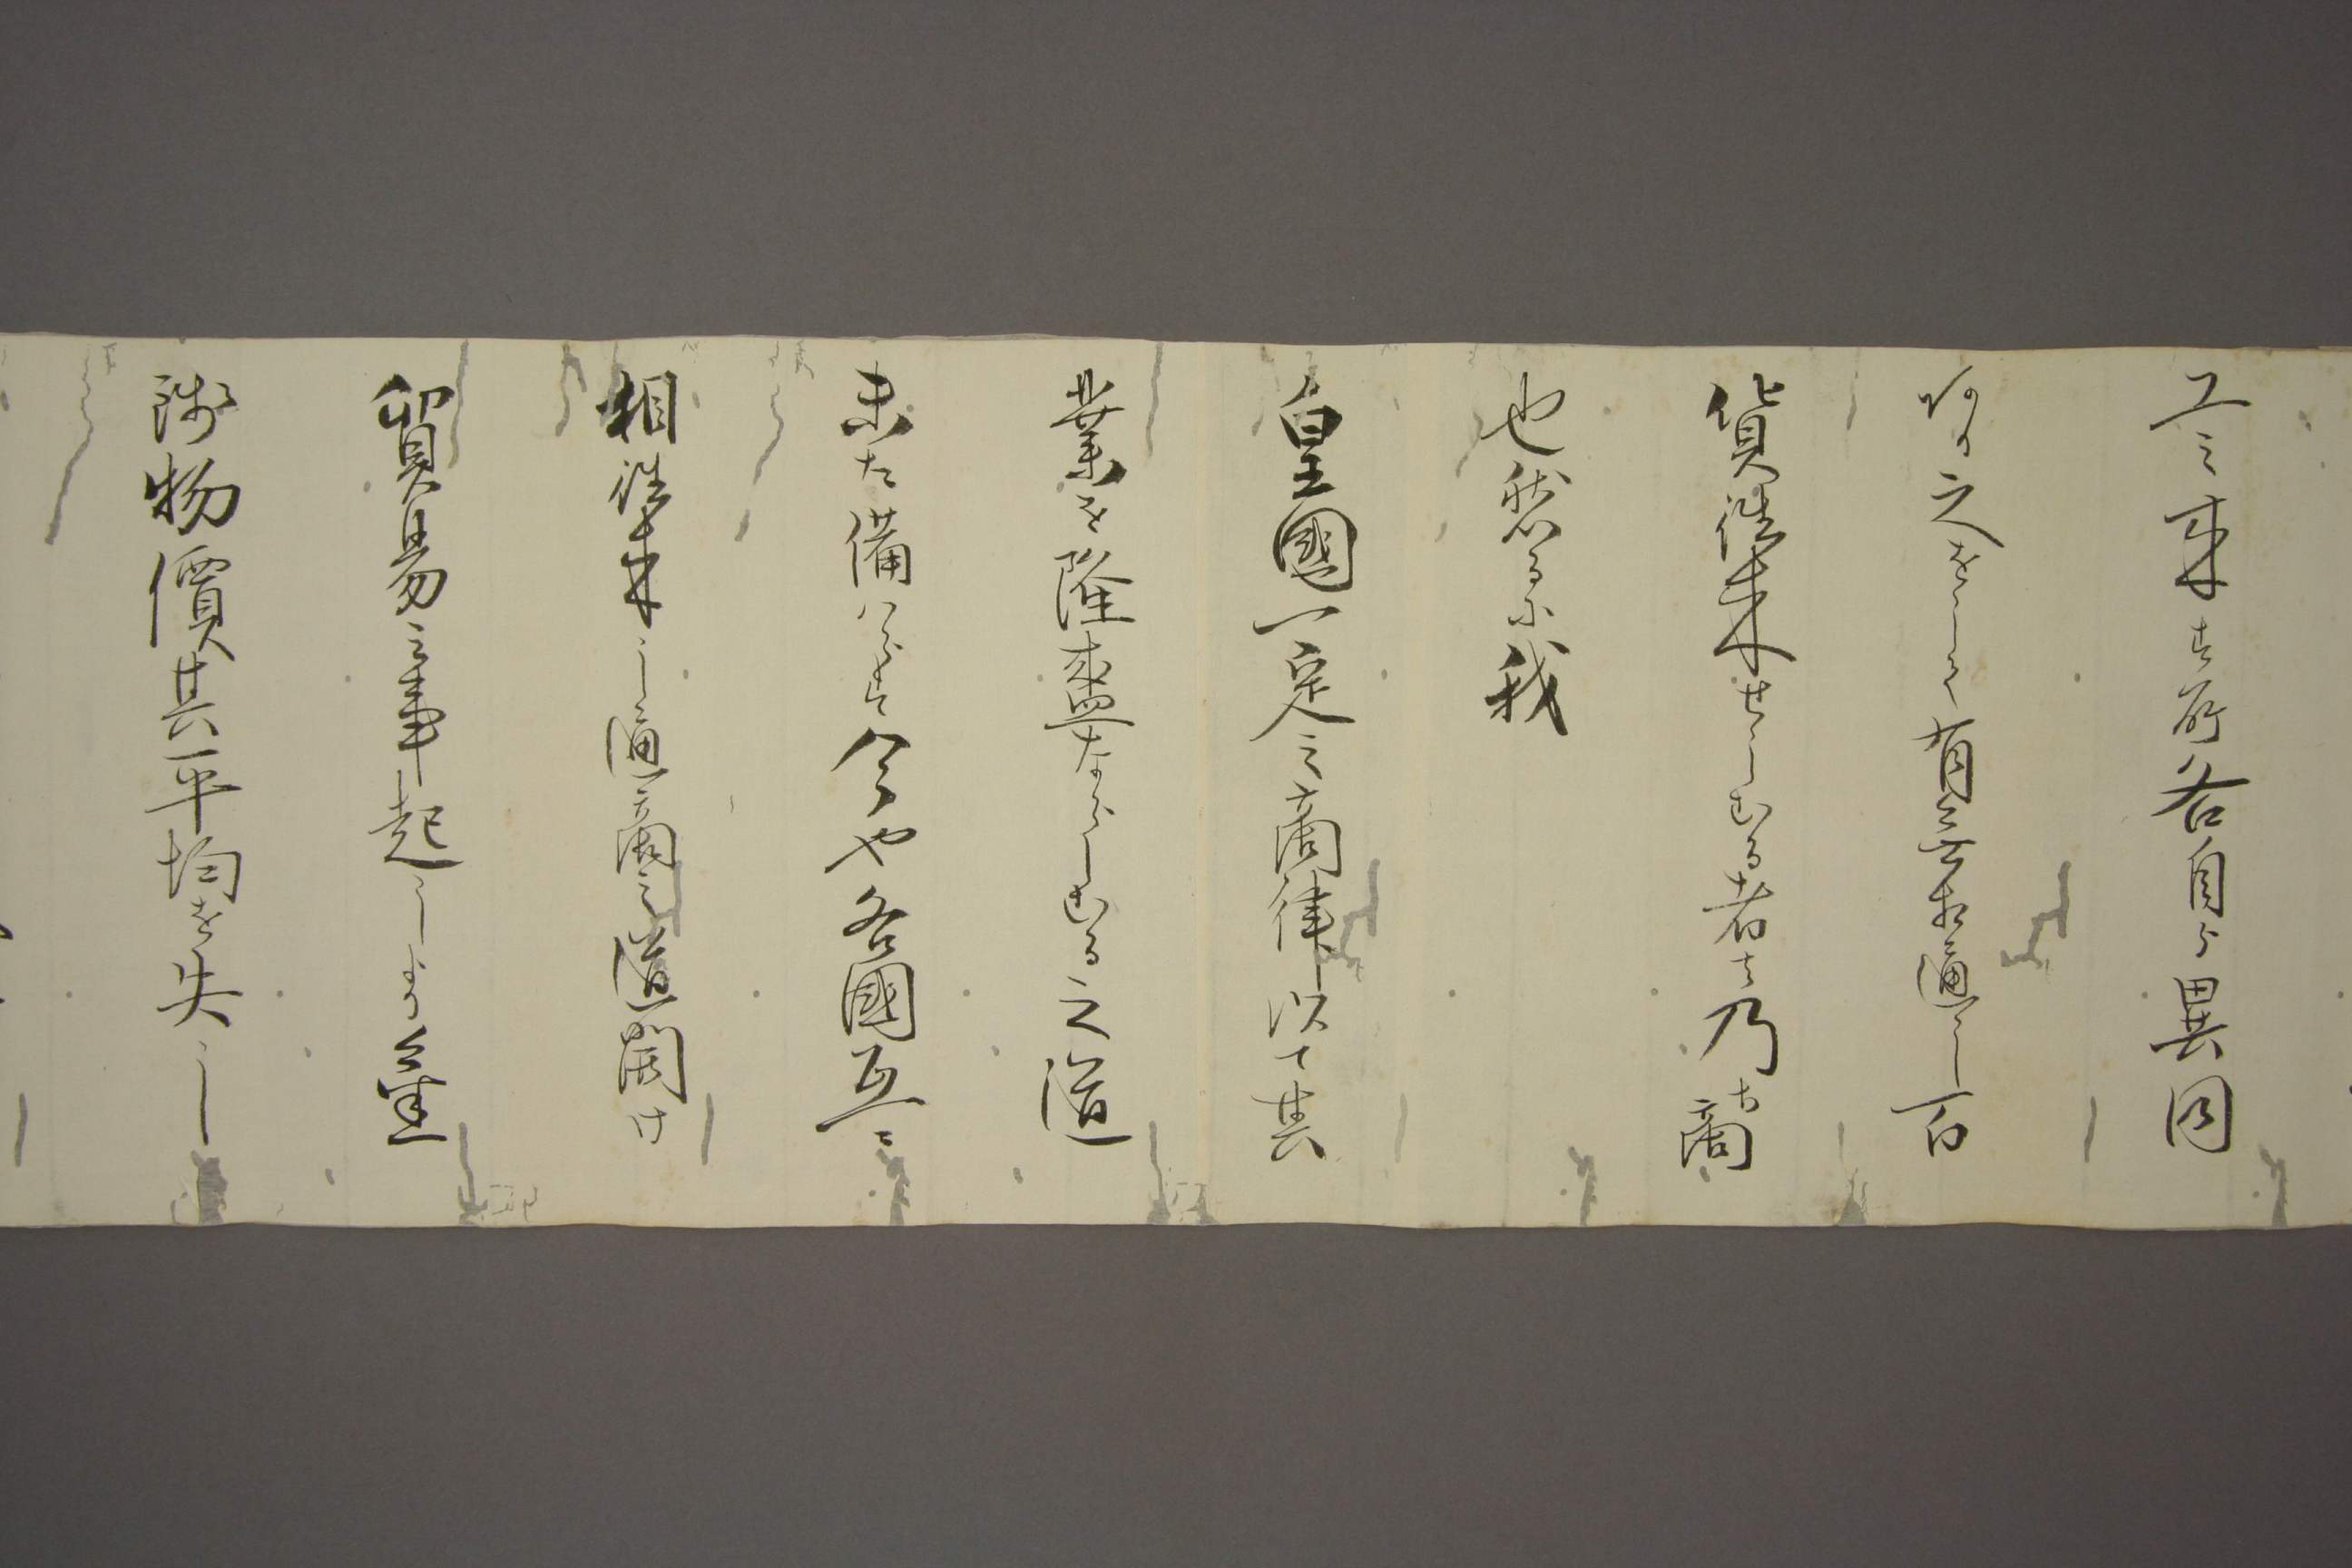 工之来す所各自ら異同
あり之をして有無相通し百
貨往来せしむる者は乃ち商
也然るに我
皇國一定之商律以て其
業を隆盛ならしむる之道
未た備ハらす今や各國互ニ
相往来し通商之道開け
貿易之事起りしより金
銭物價其平均を失し